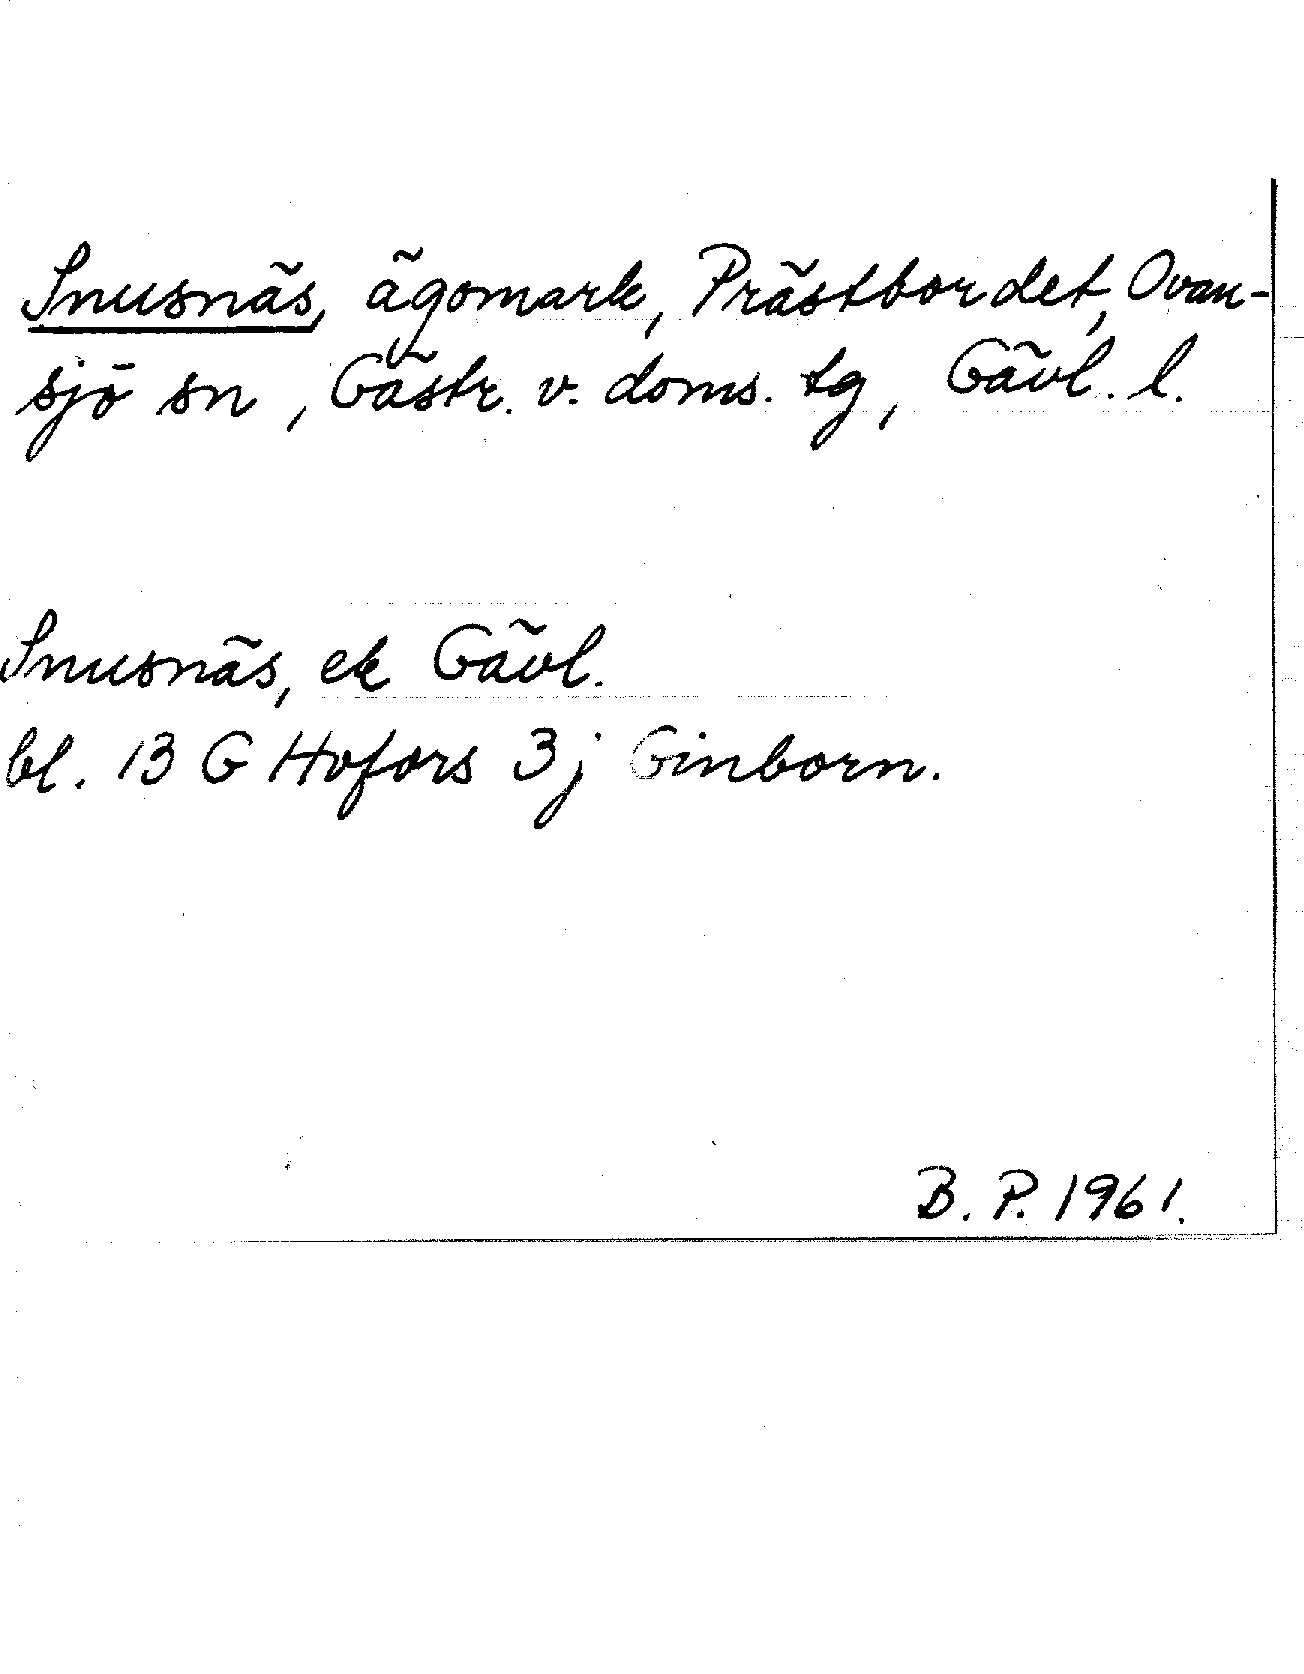 Snusnäs, ägomark, Prästbordet, Ovan-
sjö sn, Gästr. v. doms. tg, Gävl. l.
Snusnäs, ek Gävl.
bl. 13 G Hofors 3j Ginborn.
B. P. 1961.